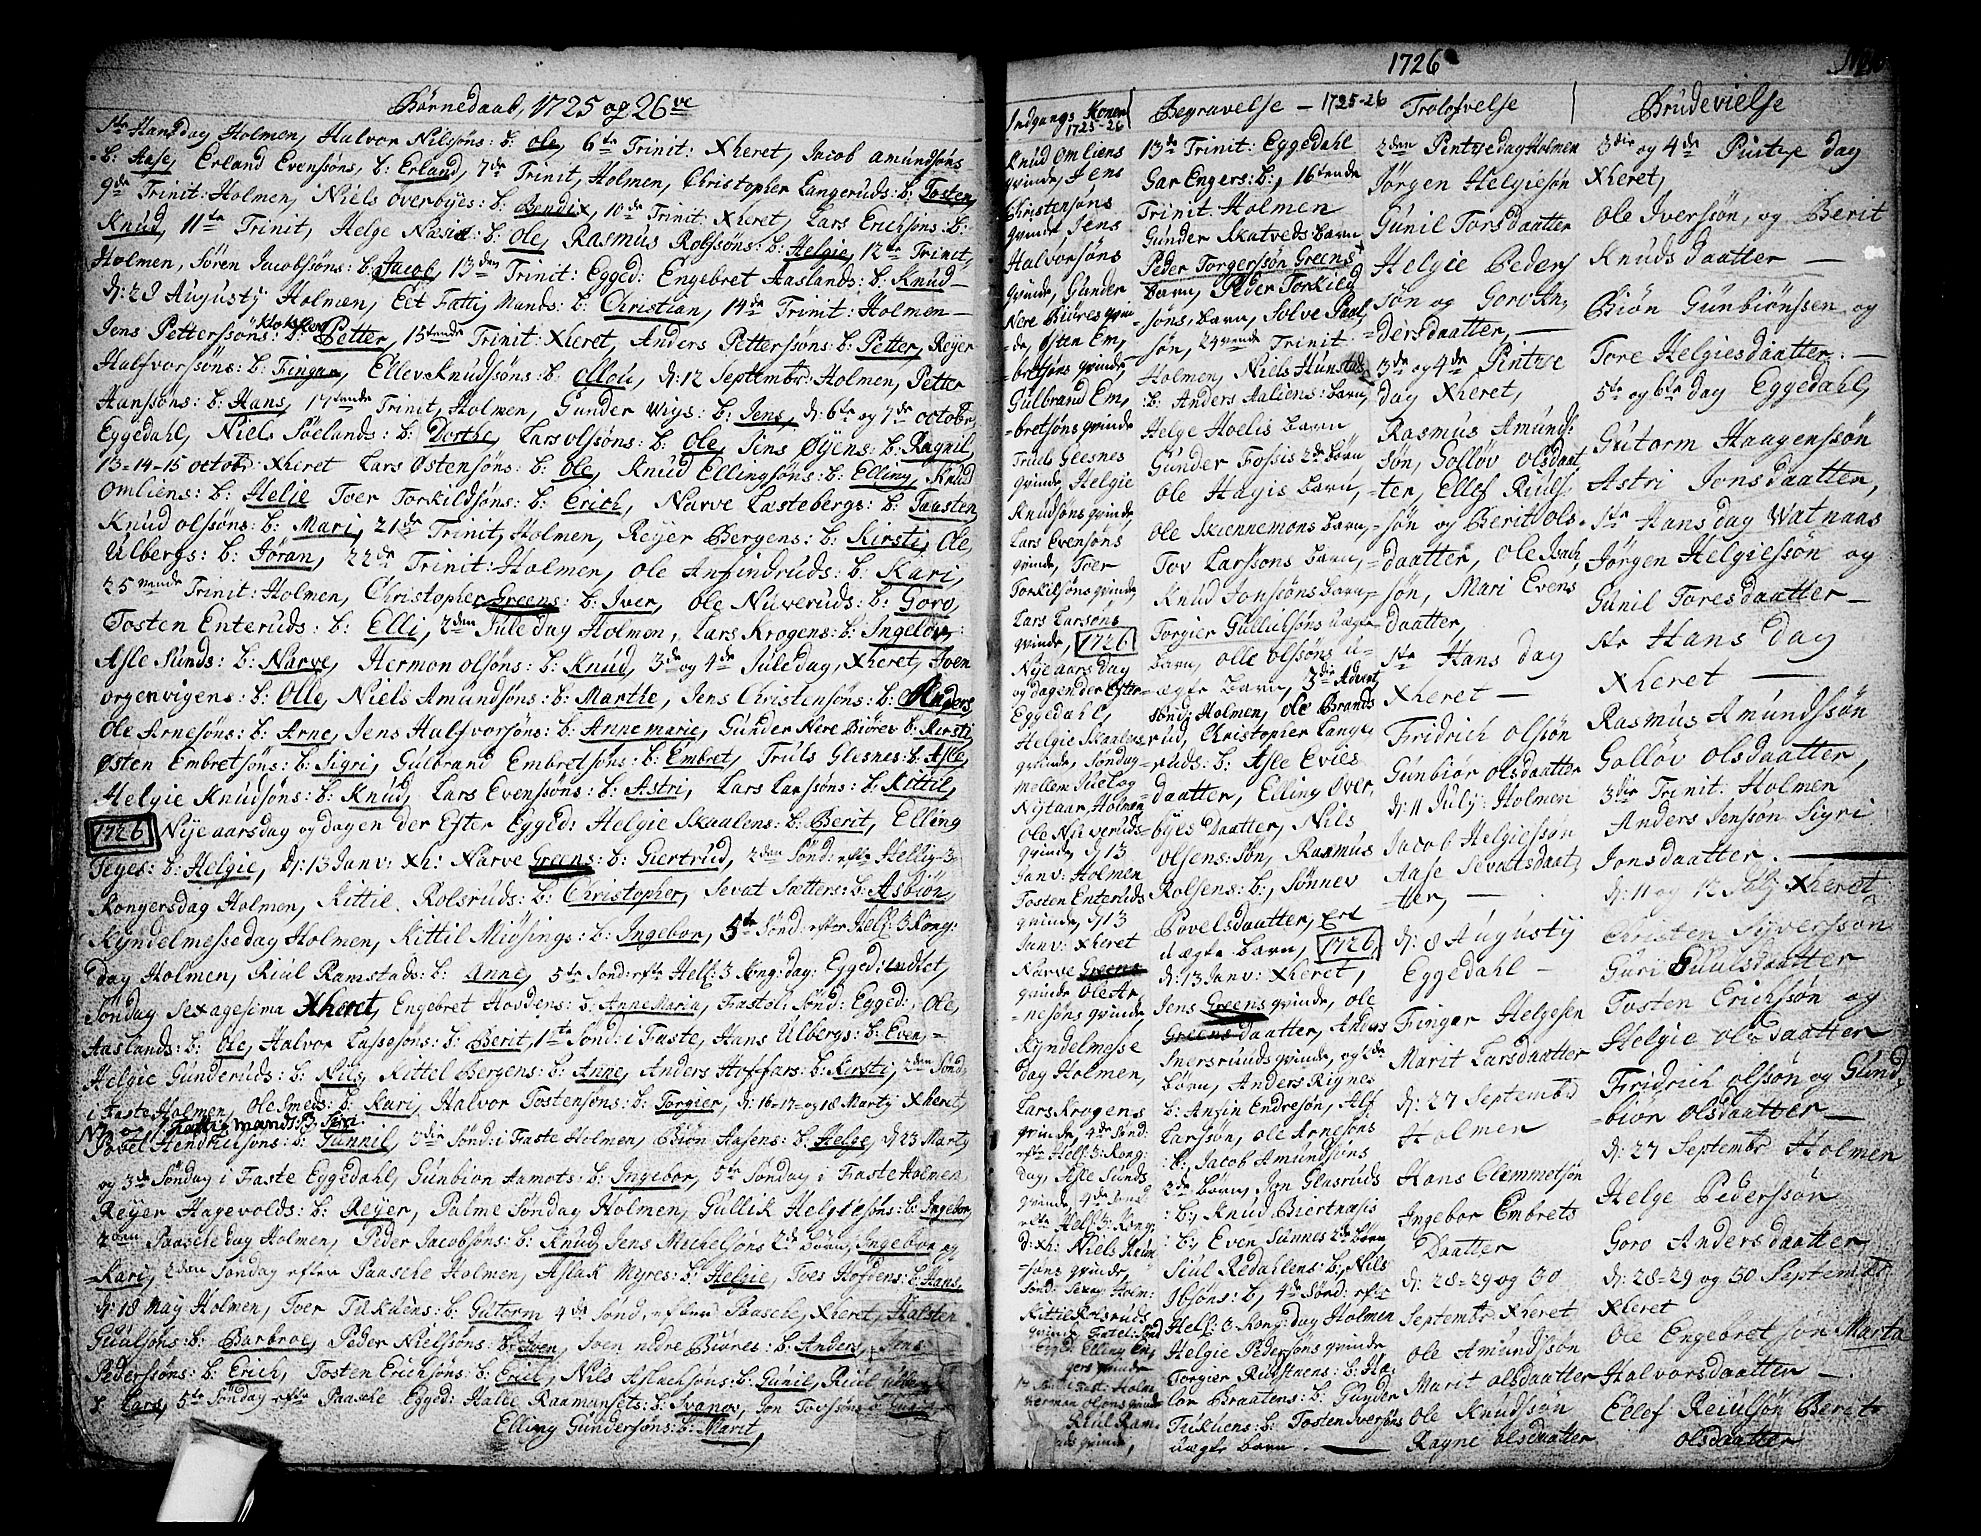 Børnedaab, 1725 og 26ve
Ste Hansdag Holmen, Halvor Nilssøns: b: Ole, 6te Trinit: Xheret, Jacob amundsøns
b: Aase, Erland Evensøns, b: Erland, 7de Trinit, Holmen, Christopher Langeruds: b: Tosten,
9de Trinit: Holmen, Niels overbyes: b: Bendix, 10de Trinit: Xheret, Lars Erichsøns: b:
Knud, 11te Trinit, Helge Næsie: b: Ole, Rasmus Rolfssøns: b: Helgie, 12te Trinit,
Holmen, Søren Jacobssøns: b: Jacob, 13den Trinit: Egged: Engebret Aaslands: b: Knud —
d: 28 Augusty Holmen, Eet Fattig Mands: b: Christian, 14de Trinit: Holmen —
Jens Petterssøns klokker: b: Petter, 15tende Trinit: Xheret, Anders Petterssøns: b: Petter, Reyer
Halfvorssøns: b: Fingar, Ellev Knudsøns: b: Ollou, d: 12 Septembr: Holmen, Petter
Hanssøns: b: Hans, 17tende Trinit, Holmen, Gunder Wigs: b: Jens, d: 6te og 7de octobr,
Eggedahl, Niels Søelands: b: Dorthe, Lars olssøns: b: Ole, Jens Øyens: b: Ragnil,
13-14-15 octobr: Xheret Lars Østensøns: b: Ole, Knud Ellingsøns: b: Elling, Knud
Omliens: b: Helje Toer Torkildsøns: b: Erich, Narve Lastebergs: b: Taasten,
Knud olssøns: b: Mari, 21de Trinit, Holmen, Reyer Bergens: b: Kirsti, Ole,
Ulbergs: b: Jøran, 22de Trinit: Holmen, Ole Anfindruds: b: Kari,
25 Trinit: Holmen, Christopher Greens: b: Iver, Ole Nuveruds: b: Goro,
Tosten Enteruds: b: Elli, 2den Juledag Holmen, Lars Krogens: b: Ingelov,
Asle Sunds: b: Narve, Hermon olsøns: b: Knud, 3de og 4de Juledag, Xheret, Iven
orgenvigens: b: Olle, Niels Amundsøns: b: Marthe, Jens Christensøns: b: Anders,
Ole Arnesøns: b: Arne, Jens Halfvorsøns: b: Anne marie, Gunder Nere Biøre: b: Kirsti,
Østen Embretsøns: b: Sigri, Gulbrand Embretsøns: b: Embret, Truls Glesnes: b: Asle,
Helgie Knudsøns: b: Knud, Lars Evenssøns: b: Astri, Lars Larssøns: b: Kittil,
1726 Nye aarsdag og dagen der Efter Egged: Helgie Skaalens: b: Berit, Elling
Teyes: b: Helgie, d: 13 Janv: Xh: Narve Greens: b: Giertrud, 2den Sønd: efte Hellig 3
Kongersdag Holmen, Kittil Rolsruds: b: Christopher, Sevat Sætters: b: Asbiøn,
Kyndelmesse dag Holmen, Kittil Miøsings: b: Ingebor, 5te Sønd: efter Helf: 3 Kong:
dag Holmen, Riul Ramstads: b: Anne, 5te Sønd: efte Helf: 3 Kong: dag: Egged:
Søndag Sexagesima Xheret, Engebret Hoddens: b: Anne Maria, Fastel: Sønd: Egged: Ole,
Aaslands: b: Ole, Halvor Lassesøns: b: Berit, 1ste Sønd: i Faste, Hans Ulbergs: b: Even,
Helgie Gunderuds: b: Nils, Kittel Bergens: b: Anne, Anders Hoffars: b: Kersti, 2den Sønd,
i Faste Holmen, Ole Smeds: b: Kari, Halvor Tostensøns: b: Torgier, d: 16-17- og 18 Marty Xheret,
Fattig mands: b: Siri:
Povel Hendrichsøns: b: Gunnil, 3die Sønd: i Faste Holmen, Biøn Aasens: b: Helje, d: 23 Marty
og 3de Søndag i Faste Eggedahl, Gunbiøn Aamots: b: Ingebor, 5te Søndag i Faste Holmen,
Reyer Hagevolds: b: Reyer, Palme Søndag Holmen, Gullik Helgiesøns: b: Ingebor,
2den Paasche dag Holmen, Peder Jacobsøns: b: Knud, Jens Michelsøns 2de Børn, Ingebor og
Kari, 2den Søndag efter Paasche Holmen, Aslak Myres: b: Helgie, Toes Hofdens: b: Hans,
d: 18 May Holmen, Toer Tukuens: b: Gutorm 4de Sønd: efter Paasche, Xheret, Halsten
Giulsøns: b: Barbroe, Peder Nielsøns: b: Iven, Iven nedre Biøres: b: Anders, Jens
Pederssøns: b: Erich, Tosten Ericksøns: b: Erich, Nils Aslachsøns: b: Gunil, Riul
: Lars, 5te Søndag efte Paasche Egged: Halle Raamansets: b: Svanov, Jon Tovssøns
Elling Gundersøns: b: Marit,
1726
Indgangs Konen
1725-26
Knud Omliens
qvinde, Jens
Christensøns
qvinde, Jens
Halvorsøns
qvinde, Gunder
Nere Biøres qvin-
-de, Østen Em,
-bretsøns qvinde,
Gulbrand Em,
-bretsøns qvinde
Truels Gleesnes
qvinde, Helgie
Knudsøns qvinde,
Lars Evensøns
qvinde, Toer
Torkilsøns qvinde,
Lars Larsøns
qvinde, 1726
Nye aars dag
og dagen der Efter
Eggedahl,
Helgie Skaalens
qvinde, Søndag
mellem Juel og
Nytaar, Holmen
Ole Nuveruds
qvinde, d: 13
Janv: Holmen
Tosten Enteruds
qvinde, d: 13
Janv: Xheret
Narve Greens
qvinde Ole Ar
-nesøns qvinde
Kyndelmesse
dag Holmen,
Lars Krogens
qvinde, 4de Sønd:
efte Helf: 3: Kong:
dag, Asle Sunds
qvinde, 4de Sønd
efte Helf: 3: Kong:
d: Xh: Niels
søns qvinde,
Sønd: Sexag: Holm:
Kittil Rolsruds
qvinde, Fastel: Sønd
Egged: Elling
gers qvinde
Herman olsøns qvinde
Riul Ram,
ads qvinde,
Begravelse — 1725-26
13de Trinit: Eggedahl
Gar Engers: b:, 16tende
Trinit: Holmen
Gunder Skatveds Barn
Peder Torgerssøn Greens
barn, Peder Torkild
søns, barn, Sølve Paul,
søn, 24 Trinit
Holmen, Niels Hunstad
: b: Anders Aaliens: barn,
Helge Hoelis barn
Gunder Fossis 2de børn,
Ole Hagis barn,
Ole Skiennemons barn,
Tov Larssons barn,
Knud Jonssøns barn,
Torgier Gulliksøns uægte
barn, olle olssøns u-
-ægte barn, 3die Advent,
sønd: Holmen, ole Brands
rud, Christopher Lange
-ruds: b: Asle Evies
daatter, Elling Over,
byes Daatter, Nils
olsens: Søn, Rasmus
Rolsens: b:, Sønnev
Povelsdaatter, Eet
uægte barn, 1726
d: 13 Janv: Xheret,
Jens Greens qvinde, ole
Greens daatter, Anders
Snersruds qvinde, og 2de
børn, Anders Rignes
b: Anzin Endresøn, Alf
Larssøn, ole Arnesøns
: b:, Jacob Amundsøns
2de børn, Jon Glasruds
: b:, Knud Biertnæsis
: b:, Even Sønnes 2de børn
Siul Redahlens: b:, Nils
Ibsøns: b:, 4de Sønd: efte
Helf: 3: Kong: dag Holmen
Helgie Pedersøns qvinde
Torgier Rustaens: b:
lor Braatens: b: Gunder
Tukuens: b: Tosten Iversøns
uægte barn. —
Trolofvelse
2den Pintzedag Holmen
Jørgen Helgiesøn
Gunil Torsdaatter
Helgie Peders
søn og Goro An,
dersdaatter, —
3de og 4de Pintze
dag Xheret,
Rasmus Amund:
søn, Golløv olsdaat,
-ter, Ellef Riuls
-søn og Berit ols,
daatter, Ole Isach,
søn, Mari Evens
daatter,
Ste Hans dag
Xheret —
Fridrich olsøn
Gunbiør olsdaatter
d: 11 July: Holmen
Jacob Helgiessøn
Aase Sevatsdaat,
-ter, —
d: 8 Augusty
Eggedahl —
Fingar Helgesen
Marit Larsdaatter
d: 27 Septembr
Holmen
Hans Clemmetsøn
Ingebor Embrets
Daatter
d: 28-29 og 30
Septembr Xheret
Ole Amundsøn
Marit olsdaatter
Ole Knudsøn
Ragne olsdaatter
Brudevielse
3die og 4de Pintze dag
Xheret,
Ole Iverssøn, og Berit
Knuds daatter —
Biøn Gunbiønssen og
Tore Helgiesdaatter. —
5te og 6te dag Eggedahl,
Gutorm Haagenssøn
Astri Jonsdaatter,
Ste Hansdag Watnaas
Jørgen Helgiessøn og
Gunil Toresdaatter —
Ste Hans dag
Xheret —
Rasmus Amundssøn
Golløv olsdaatter,
3die Trinit: Holmen
Anders Jenssøn Sigri
Jonsdaatter. —
d: 11 og 12 July Xheret,
Christen Syverssøn
Guri Juulsdaatter
Tosten Erichssøn og
Helgie olsdaatter
Fridrich olssøn og Gund,
-bior olsdaatter —
d: 27 Septembr Holmen
Helge Pederssøn
Goro Andersdaatter,
d: 28-29 og 30 Septembr
Xheret
Ole Engebretsøn Marta
Halvorsdaatter —
Ellef Reiulsøn Berit
olsdaatter